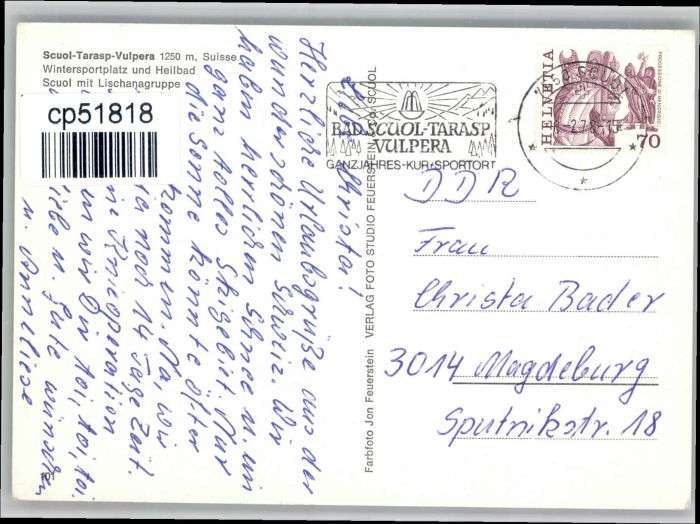 Scuol-Tarasp-Vulpera 1250 m, Suisse
Wintersportplatz und Heilbad
Scuol mit Lischanagruppe
cp51818
Liebe Christa!
Herzliche Urlaubsgrüße aus der
wunderschönen Schweiz. Wir
haben herrlichen Schnee u. ein
ganz tolles Skigebiet. Nur
die Sonne könnte öfter
kommen. Na wir
noch 14 Tage Zeit.
Knieoperation
wir Dir toi, toi, toi.
Liebe u. Gute wünschen
u. Anneliese
101
Farbfoto Jon Feuerstein VERLAG FOTO STUDIO FEUERSTEIN SCUOL
BAD SCUOL-TARASP
VULPERA
GANZJAHRES-KUR+SPORTORT
SCUOL
HELVETIA
70
DDR
Frau
Christa Bader
3014 Magdeburg
Sputnikstr. 18